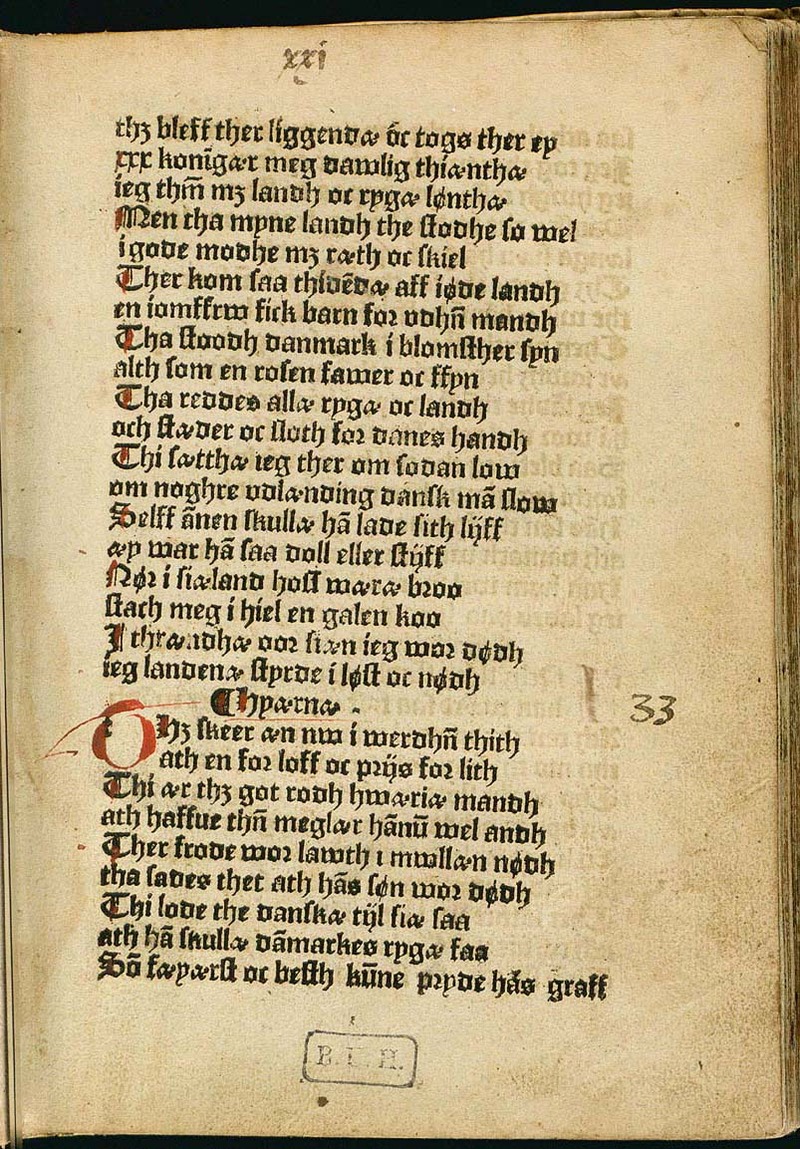 xxi
thꝫ bleff ther liggendæ oc togs ther ey
xxx konīgær meg dawlig thiænthæ
ieg thm̄ mꝫ landh oc rygæ lønthæ
Men tha myne landh the stodhe so wel
i gode modhe mꝫ ræth oc skiel
Ther kom saa thidēdæ aff iøde landh
en iomffrw fick barn for vdhn̄ mandh
Tha stoodh danmark i blomsther syn
alth som en rosen fawer oc ffyn
Tha reddes allæ rygæ oc landh
och stæder oc sloth for danes handh
Thi sætthæ ieg ther om sodan low
om noghre vdlænding dansk mā slow
Selff ānen skullæ hā lade sith lijff
æy war hā saa doll eller stijff
Nør i siæland host wæræ broo
stach meg i hiel en galen koo
I thrændhæ oor siæn ieg wor dødh
ieg landenæ styrde i løst oc nødh
Hyærnæ
33
Thꝫ skeer æn nw i werdhn̄ thith
ath en for loff oc prijs for lith
Thi ær thꝫ got rodh hwæriæ mandh
ath haffue thn̄ meglær hānū wel andh
Ther frode wor lawth i mwllæn nødh
tha sades thet ath hās søn wor dødh
Thi lode the danskæ tijl siæ saa
ath hā skullæ dāmarkes rygæ faa
Sō fæyærst oc besth kūne pryde hās graff
B. U. H.